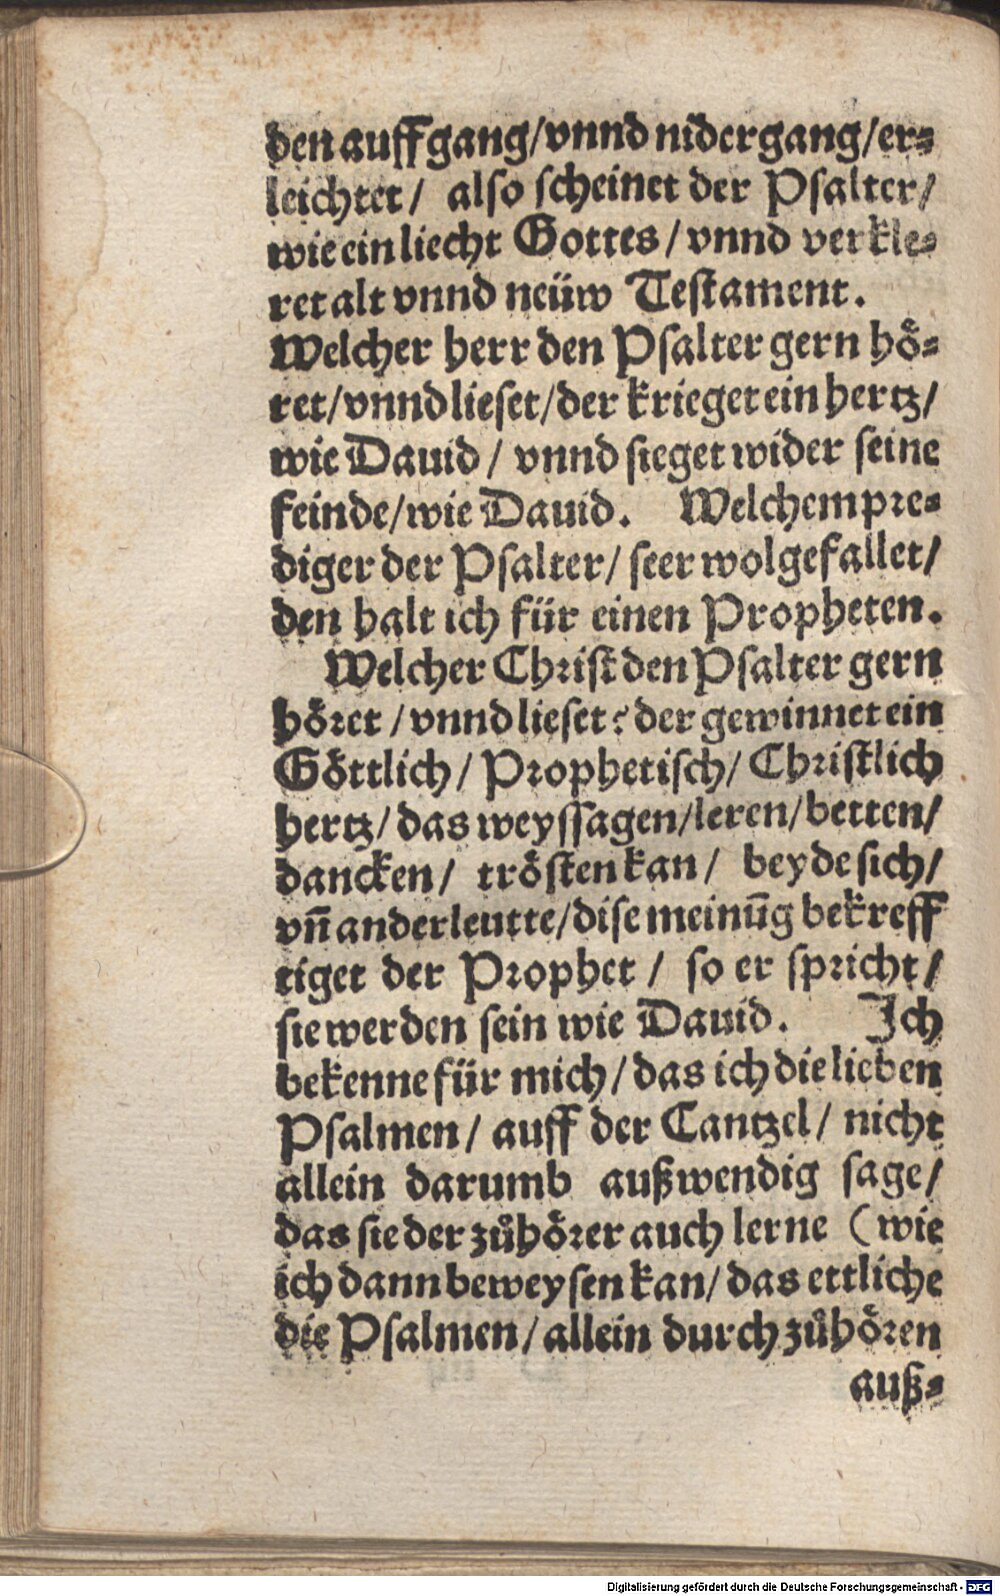 den auffgang/vnnd nidergang/er⸗
leichtet/ also scheinet der Psalter/
wie ein liecht Gottes/vnnd verkle⸗
ret alt vnnd neüw Testament.
Welcher herr den Psalter gern hoͤ⸗
ret/vnnd lieset/der krieget ein hertz/
wie Dauid/ vnnd sieget wider seine
feinde/wie Dauid. Welchem pre⸗
diger der Psalter/ seer wolgefallet/
den halt ich für einen Propheten.
Welcher Christ den Psalter gern
hoͤret/vnnd lieset: der gewinnet ein
Goͤttlich/ Prophetisch/ Christlich
hertz/ das weyssagen/leren/betten/
dancken/ troͤsten kan/ beyde sich/
vñ ander leutte/dise meinūg bekreff
tiget der Prophet/ so er spricht/
sie werden sein wie Dauid. Ich
bekenne für mich/das ich die lieben
Psalmen/ auff der Cantzel/ nicht
allein darumb außwendig sage/
das sie der zůhoͤrer auch lerne (wie
ich dann beweysen kan/ das ettliche
die Psalmen/allein durch zůhoͤren
auß⸗
Digitalisierung gefördert durch die Deutsche Forschungsgemeinschaft - DFG